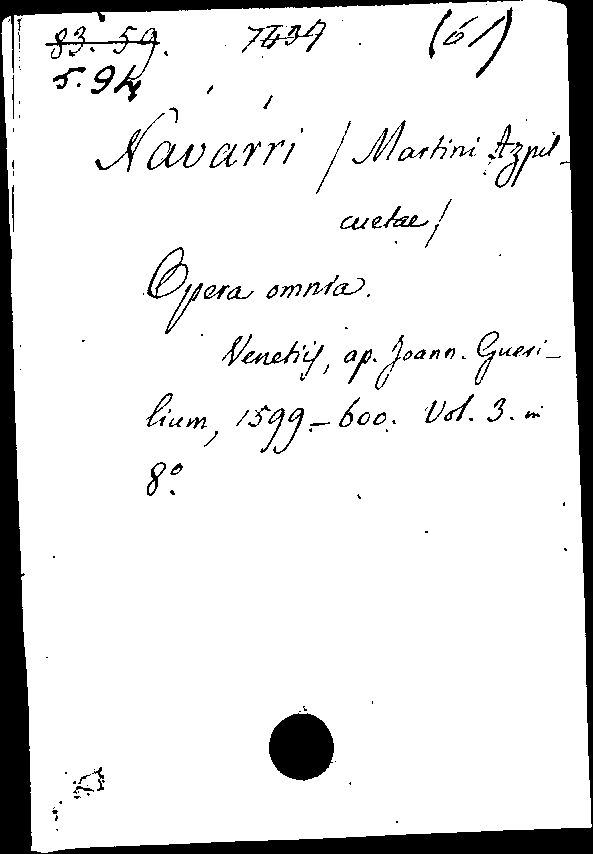 83. 59. 7437 (61)
5. 94
Navarri / Martini Azpil-
cuetae /
Opera omnia.
Venetiis, ap. Joann. Gueri-
lium, 1599-600. Vol. 3. in
8º.